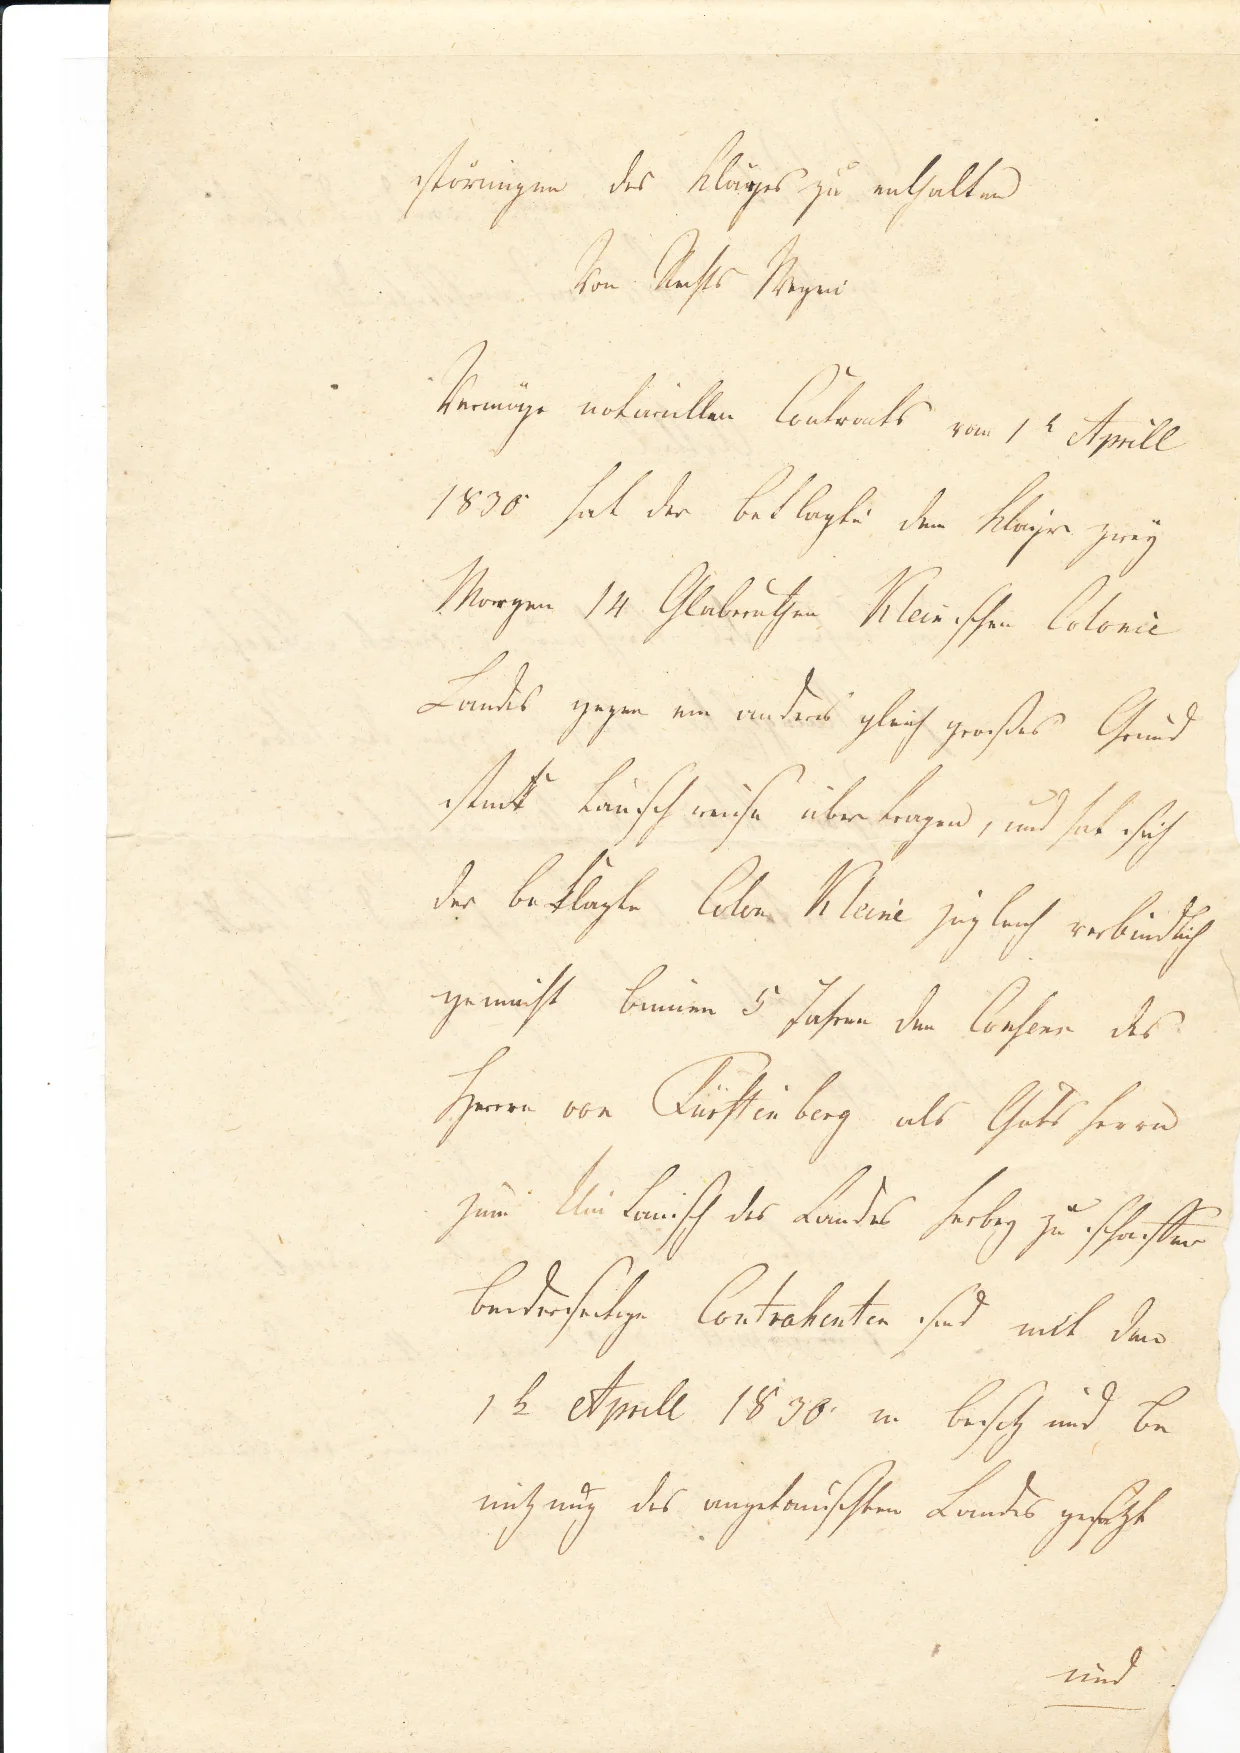 störungen des Klägers zu enthalten
Von Rechts Wegen
Vermöge notariellen Contracts vom 1t Aprill
1830 hat der beklagte dem Kläger zwey
Morgen 14 Kleinschen Colonie
Landes gegen ein anderes gleich großes Grund
stück tauschweise übertragen, und hat sich
der beklagte Colon Kleine zugleich verbindlich
gemacht binnen 5 Jahren den Consens des
Herrn von Fürstenberg als Gutsherrn
zum Umtausch des Landes herbey zu schaffen
beiderseitige Contrahenten sind mit dem
1t Aprill 1830 in besitz und be
nutzung des angetauschten Landes gesetzt
und